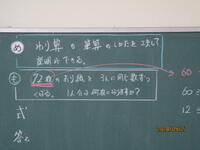 め わり算の筆算のしかたを工夫して
説明ができる。
72枚のおり紙を3人に同じ数ずつ
くばる。1人分は何枚になりますか?
60
60
12
式
答え